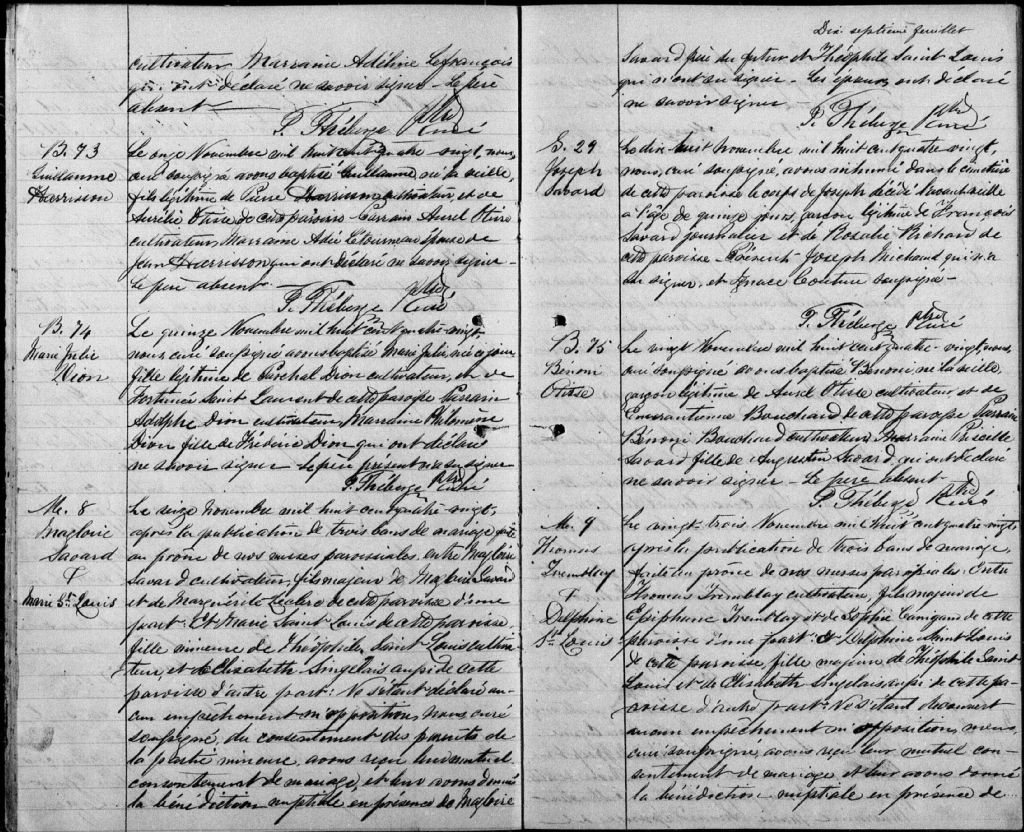 cultivateur Marraine Adéline Lefrançois
qui ont déclaré ne savoir signer Le père
absent
P. Théberge Ptre Curé
B. 73
Guillaume
Harrisson
Le onze Novembre mil huit cent quatre-vingt, nous,
curé soussigné avons baptisé Guillaume, né la veille,
fils légitime de Pierre Harrisson cultivateur, et de
Aurélie Otisse de cette paroisse Parrain Aurel Otisse
cultivateur, Marraine Létourneau épouse de
Jean Harrisson qui ont déclaré ne savoir signer
Le père absent
P. Théberge Ptre Curé
B. 74
Marie Julie
Dion
Le quinze Novembre mil huit cent quatre-vingt
nous curé soussigné avons baptisé Marie Julie née ce jour
fille légitime de Paschal Dion cultivateur, et de
Fortunée Saint Laurent de cette paroisse Parrain
Adolphe Dion cultivateur, Marraine Philomène
Dion fille de Frédéric Dion qui ont déclaré
ne savoir signer Le père présent ne su signer
P. Théberge Ptre Curé
M. 8
Magloire
Savard
&
Marie St. Louis
Le seize Novembre mil huit cent quatre-vingt,
après la publication de trois bans de mariage faite
au prône de nos messes paroissiales entre Magloire
Savard cultivateur, fils majeur de Magloire Savard
et de Marguérite Leclerc de cette paroisse d'une
part: Et Marie Saint-Louis de cette paroisse,
fille mineure de Théophile Saint-Louis cultiva-
teur, et de Elisabeth Singelais aussi de cette
paroisse d'autre part: Ne s'étant déclaré au-
cun empêchement ni opposition, nous curé
soussigné, du consentement des parents de
la partie mineure avons reçu leur mutuel
consentement de mariage, et leur avons donné
la bénédiction nuptiale en présence de Magloire
Dix septième feuillet
Savard père du futur et Théophile Saint-Louis
qui n'ont su signer. Les époux ont déclaré
ne savoir signer
P. Théberge Ptre Curé
S. 29
Joseph
Savard
Le dix-huit Novembre mil huit cent quatre vingt,
nous, curé soussigné, avons inhumé dans le cimetière
de cette paroisse le corps de Joseph décédé l'avant veille
à l'âge de quinze jours, garçon légitime de François
Savard journalier et de Rosalie Richard de
cette paroisse. Présents Joseph Michaud qui n'a
su signer, et Ignace Couture soussigné
P. Théberge Ptre Curé
B. 75
Bénoni
Otisse
Le vingt Novembre mil huit cent quatre-vingt, nous,
curé soussigné avons baptisé Bénoni né la veille
garçon légitime de Aurel Otisse cultivateur, et de
Emérantienne Bouchard de cette paroisse Parrain
Bénoni Bouchard cultivateur Marraine Priscille
Savard fille de Augustin Savard qui ont déclaré
ne savoir signer. Le père absent
P. Théberge Ptre Curé
M. 9
Thomas
Tremblay
&
Delphine
St. Louis
Le vingt-trois Novembre mil huit cent quatre vingt
après la publication de trois bans de mariage,
faite au prône de nos messes paroissiales: Entre
Thomas Tremblay cultivateur, fils majeur de
Epiphane Tremblay et de Sophie de cette
paroisse d'une part: & Delphine Saint-Louis
de cette paroisse, fille majeure de Théophile Saint
Louis et de Elisabeth Singelais aussi de cette pa-
roisse d'autre part: Ne s'étant découvert
aucun empêchement ni opposition, nous,
curé soussigné, avons reçu leur mutuel con-
sentement de mariage et leur avons donné
la bénédiction nuptiale en présence de